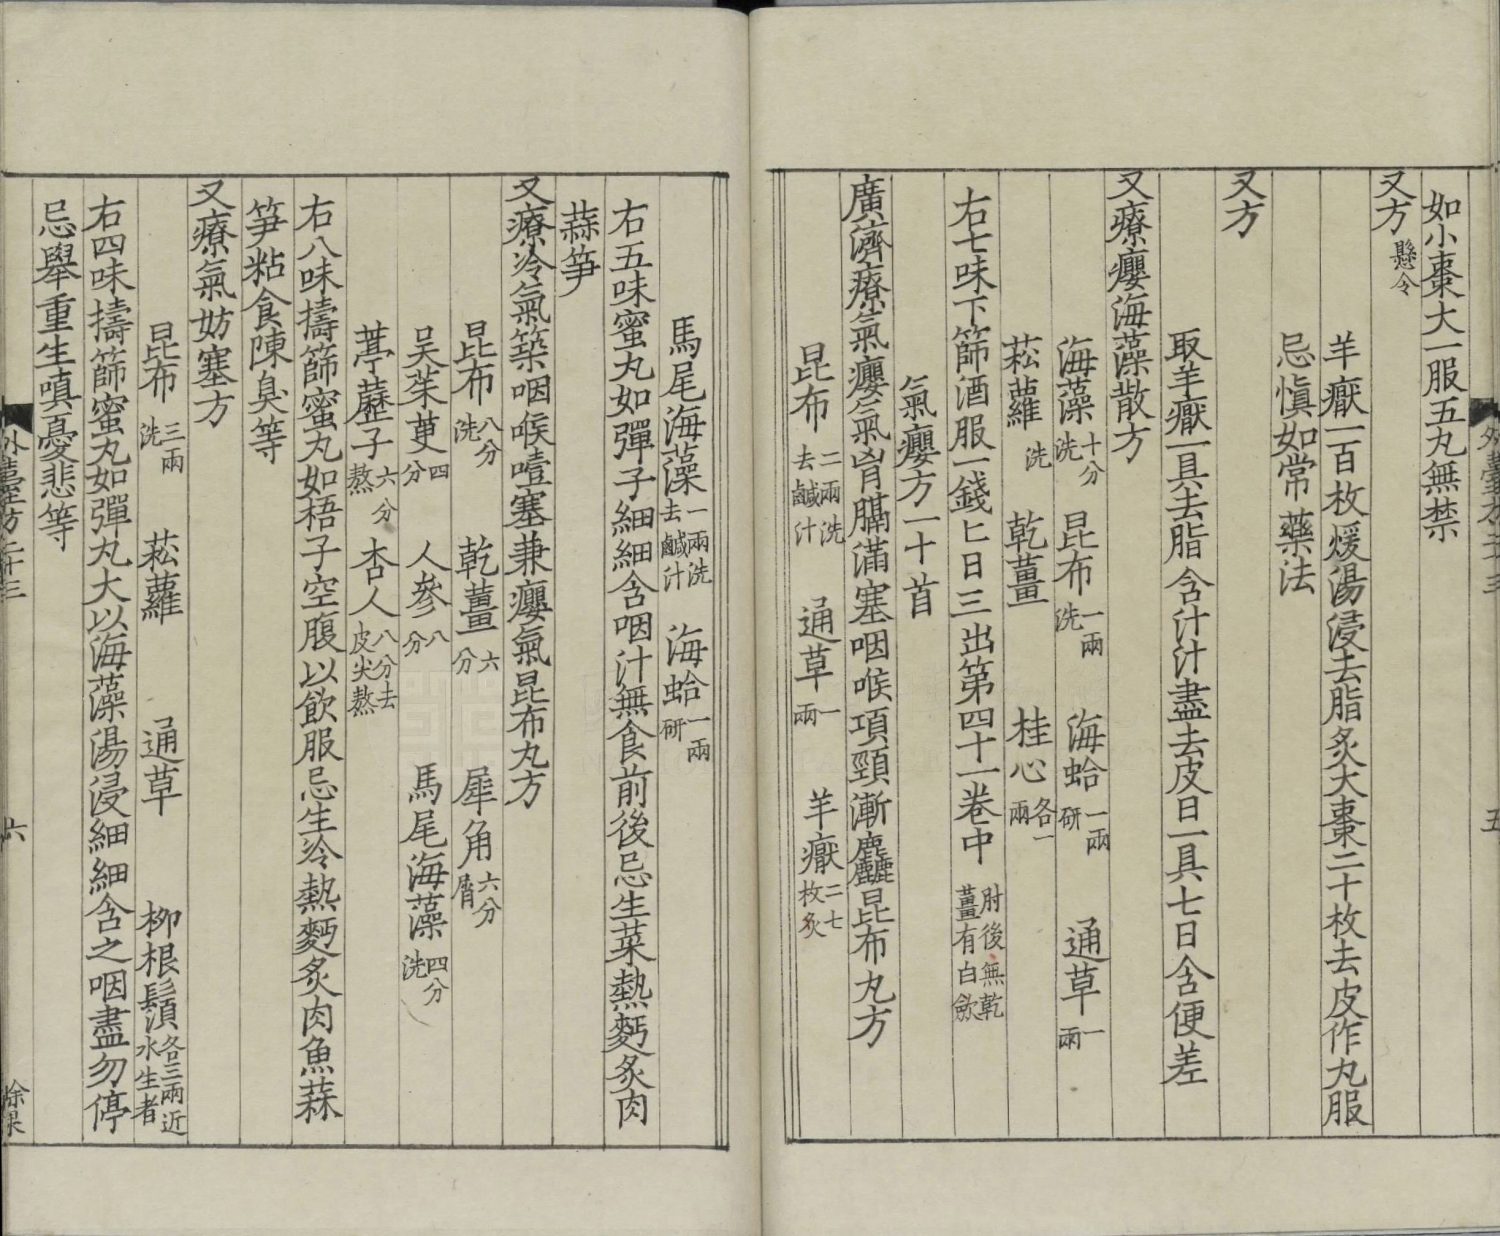 如小棗大一服五丸無禁
又方懸令
羊靨一百枚煖湯浸去脂炙大棗二十枚去皮作丸服
忌慎如常藥法
又方
取羊靨一具去脂含汁汁盡去皮日一具七日含便差
又療癭海藻散方
海藻十分洗 昆布一兩洗 海蛤一兩研 通草一兩
菘蘿洗 乾薑 桂心各一兩
右七味下篩酒服一錢匕日三出第四十一卷中肘後無乾薑有白歛
氣癭方一十首
廣濟療氣癭氣胷膈滿塞咽喉項頸漸麤昆布丸方
昆布二兩洗去鹹汁 通草一兩 羊靨二七枚炙
馬尾海藻一兩洗去鹹汁 海蛤一兩研
右五味蜜丸如彈子細細含咽汁無食前後忌生菜熱麪炙肉
蒜笋
又療冷氣築咽喉噎塞兼癭氣昆布丸方
昆布八分洗 乾薑六分 犀角六分屑
吴茱萸四分 人參八分 馬尾海藻四分洗
葶藶子六分熬 杏人八分去皮尖熬
右八味擣篩蜜丸如梧子空腹以飲服忌生冷熱麪炙肉魚蒜
笋粘食陳臭等
又療氣妨塞方
昆布三兩洗 菘蘿 通草 柳根鬚各三兩近水生者
右四味擣篩蜜丸如彈丸大以海藻湯浸細細含之咽盡勿停
忌舉重生嗔憂悲等
外臺方二十三
六
徐杲
外臺方二十三
五